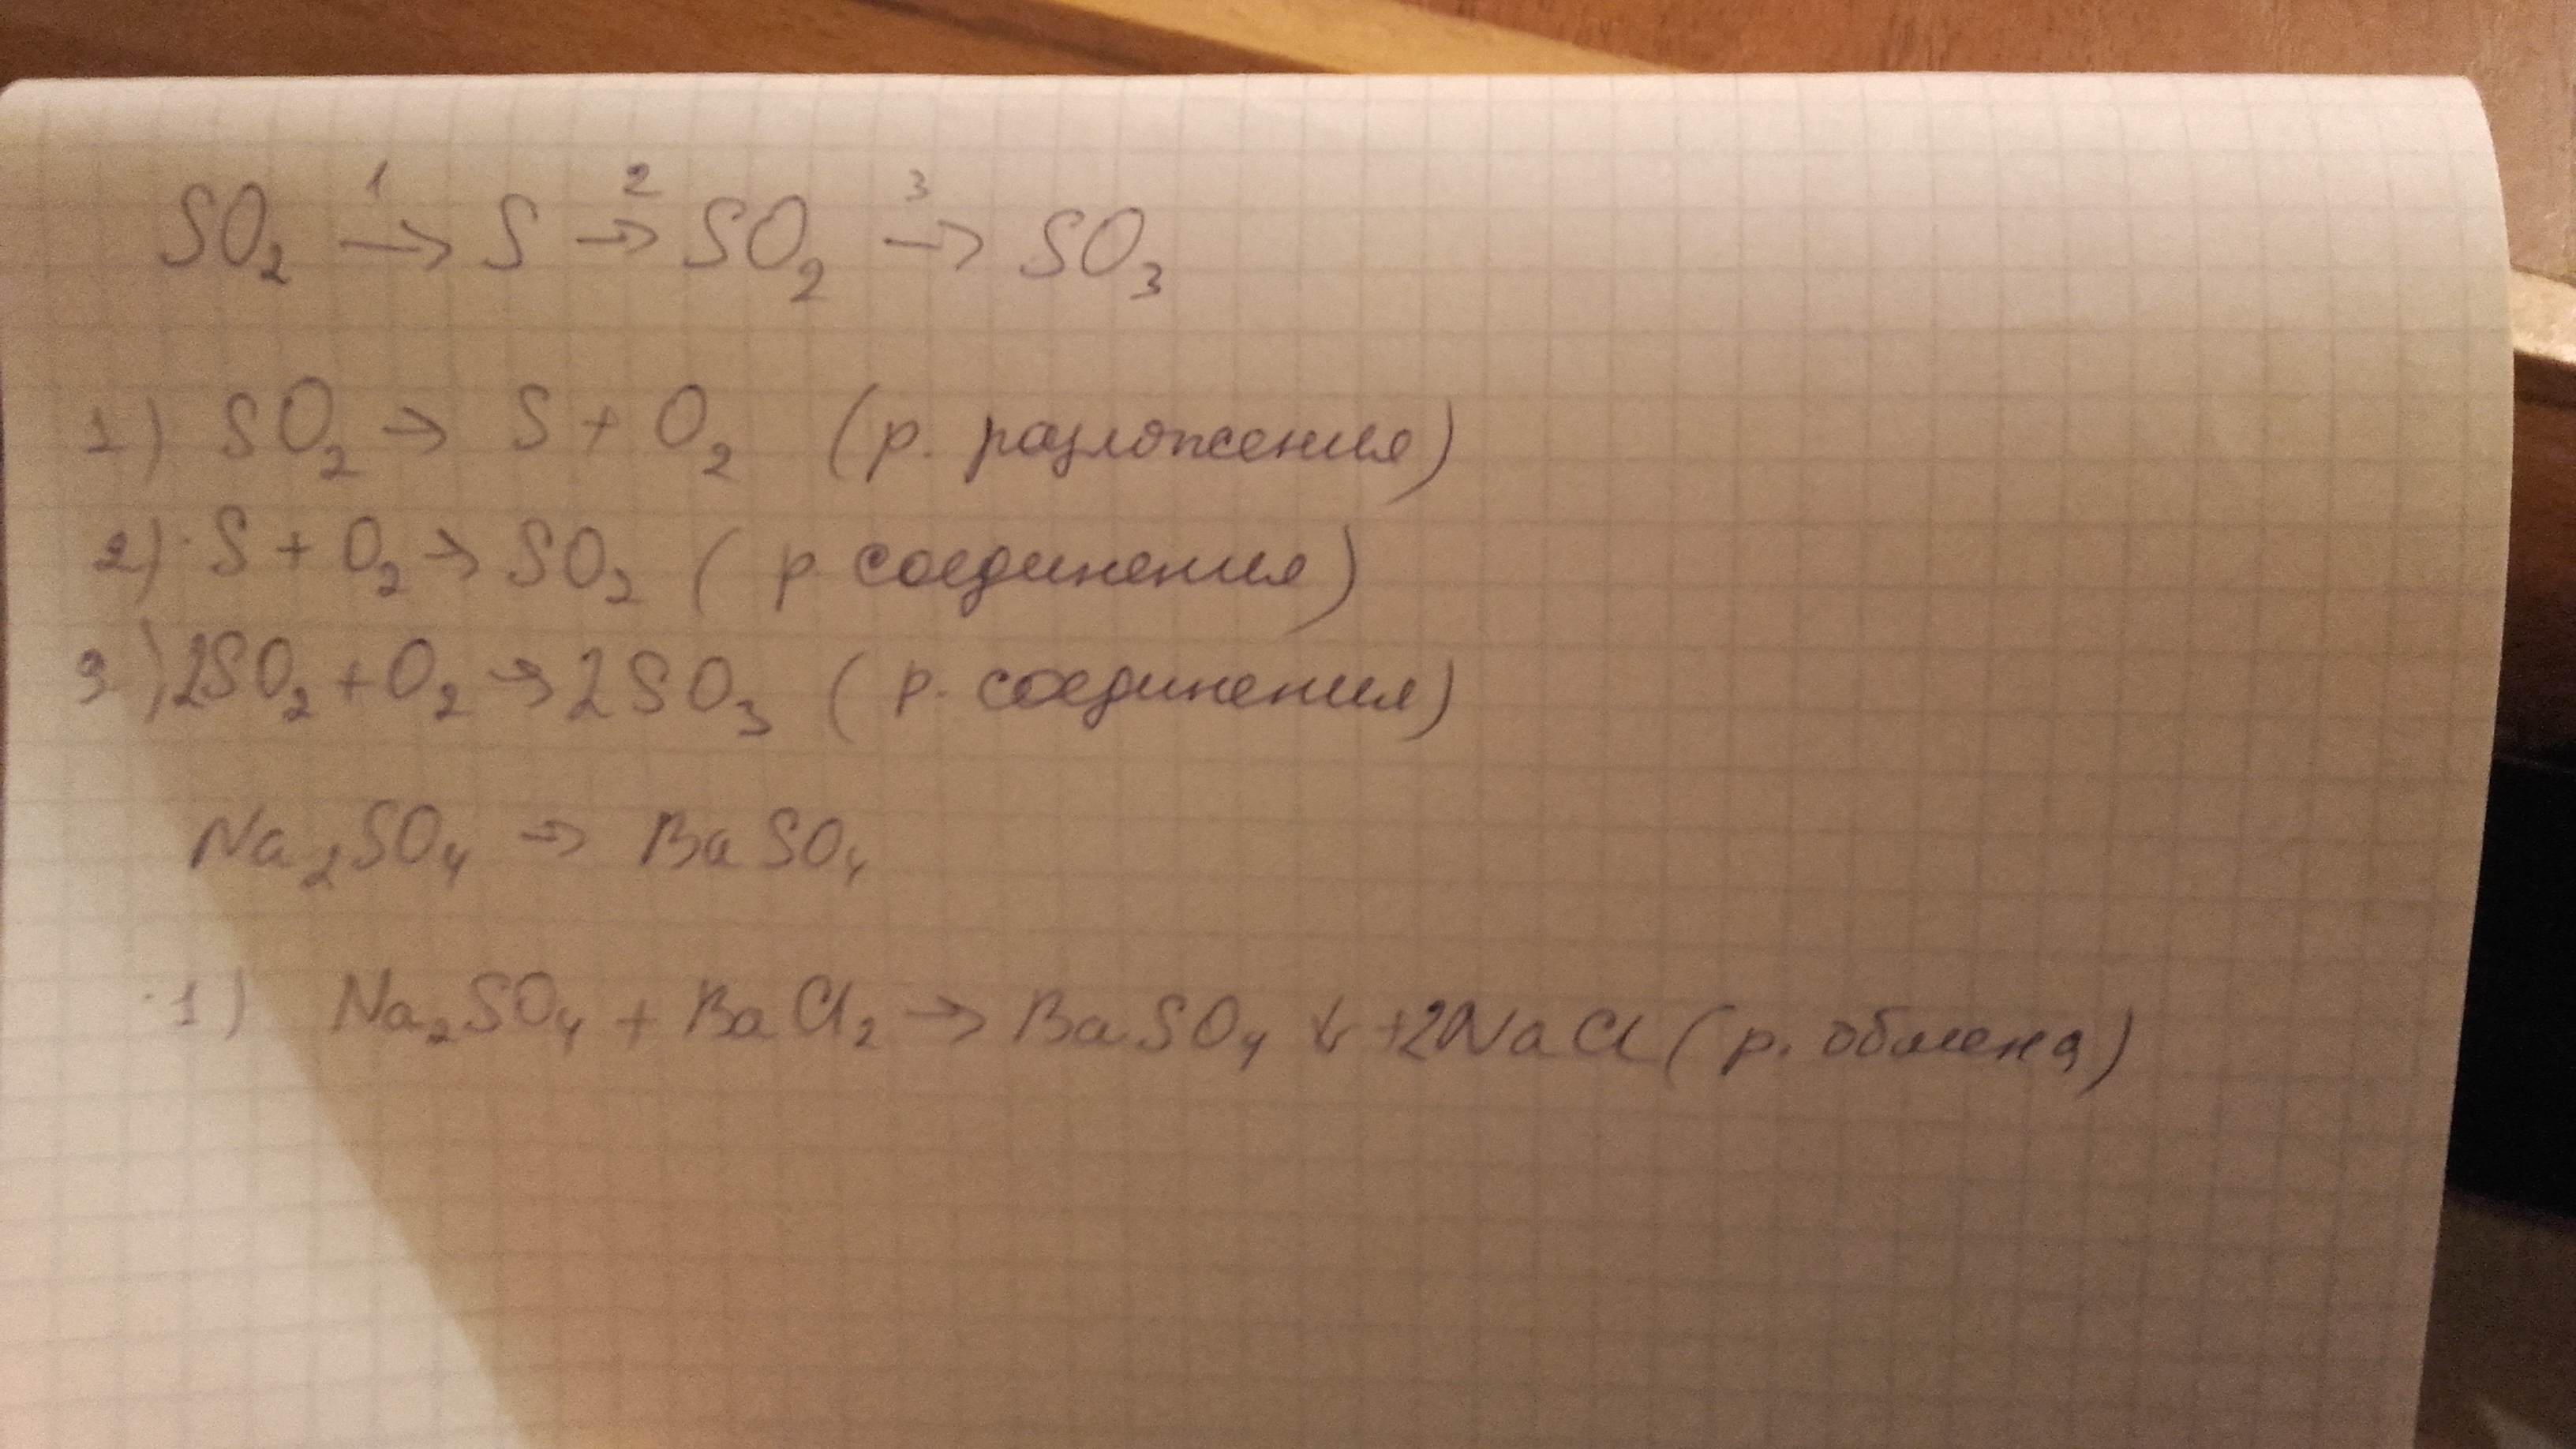 SO₂ →¹ S →² SO₂ →³ SO₃
1) SO₂ → S + O₂ (р. разложения)
2) S + O₂ → SO₂ (р соединения)
3) 2SO₂ + O₂ → 2SO₃ (р. соединения)
Na₂SO₄ → BaSO₄
1) Na₂SO₄ + BaCl₂ → BaSO₄ ↓ + 2NaCl (р. обмена)